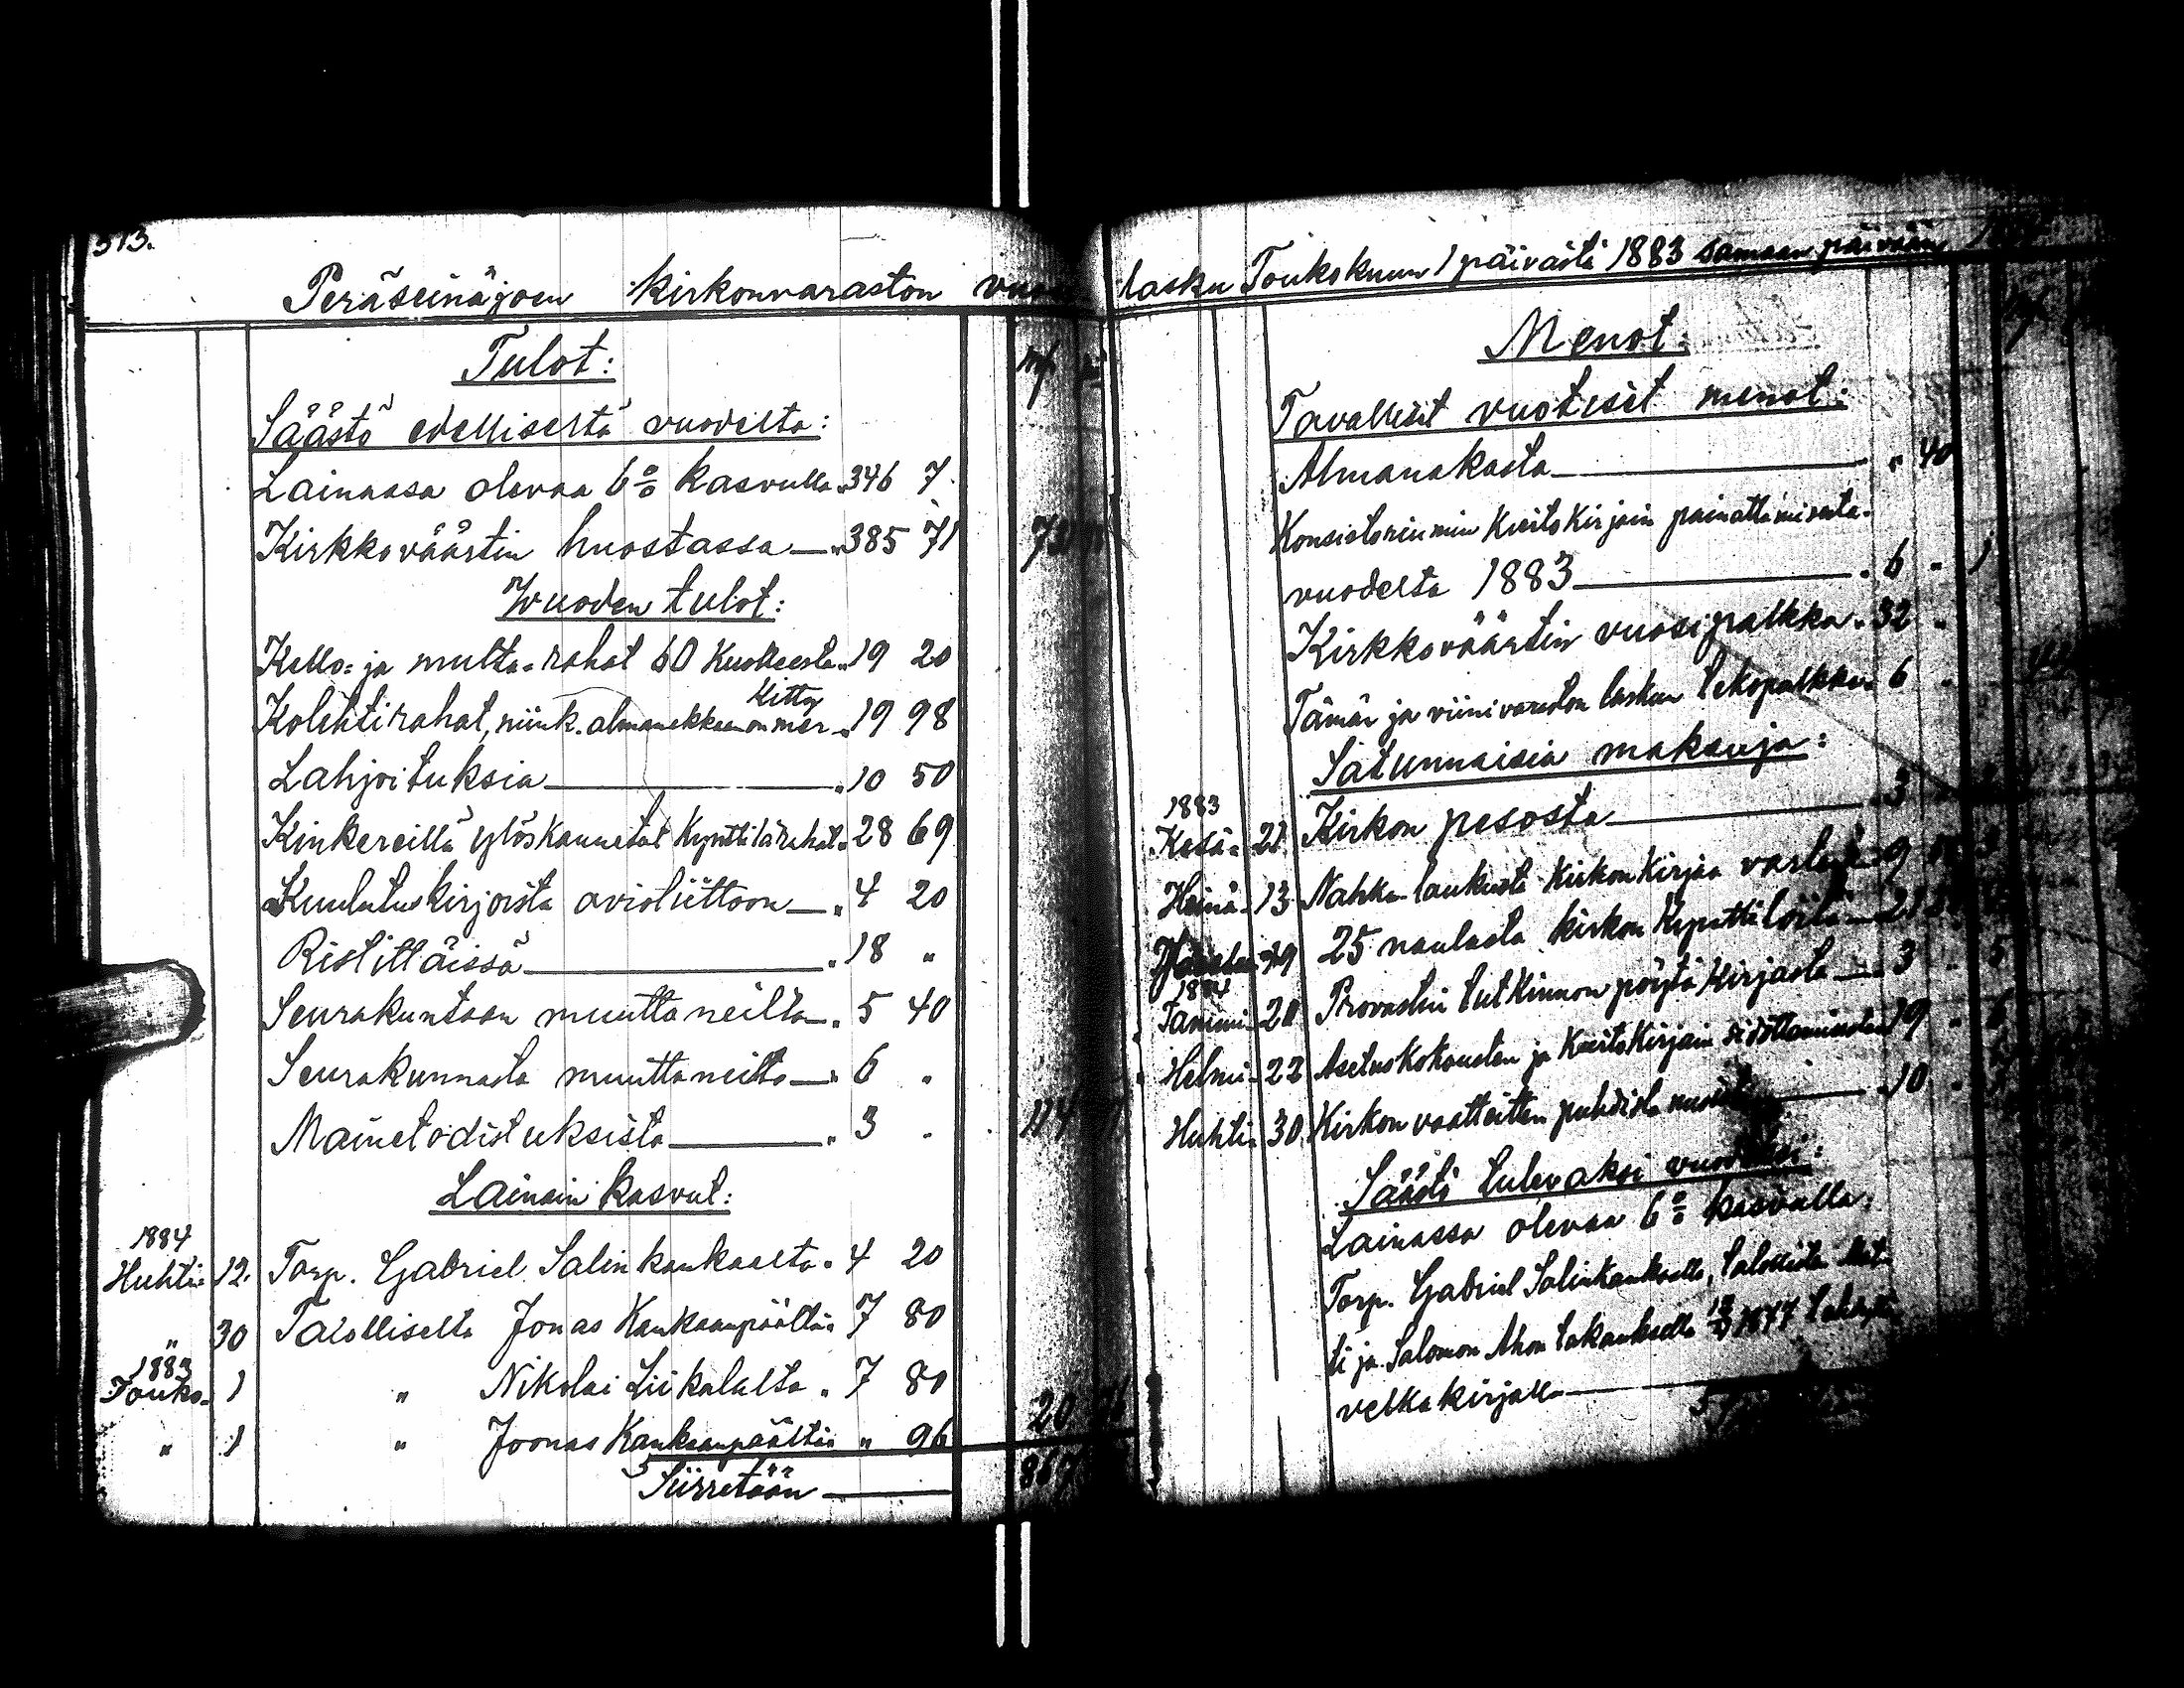 313.
Peräseinäjoen kirkonvaraston
mk
Tulot:
Säästö edelliseltä vuodelta:
Lainassa olevaa 6% kasvulla „ 346 7
Kirkkoväärtin huostassa — „ 385 71
Wuoden tulot:
Kello= ja multa=rahat 60 Kuolleesta „ 19 20
Kolehtirahat, niink. almanekkaan on mer- „ 19 98
kitty
Lahjoituksia — „ 10 50
Kinkereillä ylöskannetut Kynttilärahat „ 28 69
Kuulutuskirjoista avioliittoon — „ 4 20
Ristittäissä — „ 18 „
Seurakuntaan muuttaneilta — „ 5 40
Seurakunnasta muuttaneilta — „ 6 „
Mainetodistuksista — „ 3 „ 114
Lainain kasvut:
1884
Huhti= 12. Torp. Gabriel Salinkankaalta „ 4 20
„ 30 Talolliselta Jonas Kankaanpäältä „ 7 80
1883
Touko= 1 „ Nikolai Liikalalta „ 7 80
„ 1 „ Joonas Kankaanpäältä „ „ 96 20 76
Siirretään — 867
lasku Toukokuun 1 päivästä 1883 samaan päivään
Menot:
Tavalliset vuotiset menot:
Almanakasta — „ 40
Konsistoriumin Kiertokirjain painattamisesta
vuodelta 1883 — „ 6 „
Kirkkoväärtin vuosipalkka „ 32 „
Tämän ja viinivaraston laskun tekopalkka „ 6 „
Satunnaisia maksuja:
1883
Kesä= 21 Kirkon pesosta — „ 3
Heinä= 13 Nahka-laukusta Kirkonkirjaa varten — 9
29 25 naulasta kirkon Kynttilöitä — 21
1884
Tammi= 20 Provastin tutkinnon pöytäkirjasta — „ 3 „ 5
Helmi= 22 Asetuskokousten ja Kiertokirjain sidottamisesta 19 „ 6
Huhti= 30 Kirkon vaatteitten puhdistamisesta — „ 10 „
Säästö tulevaksi vuodeksi:
Lainassa olevaa 6% kasvulla:
Torp. Gabriel Salinkankaalla, talollisten Mat-
ti ja Salomon Ahon takauksella 1877
velkakirjalla —